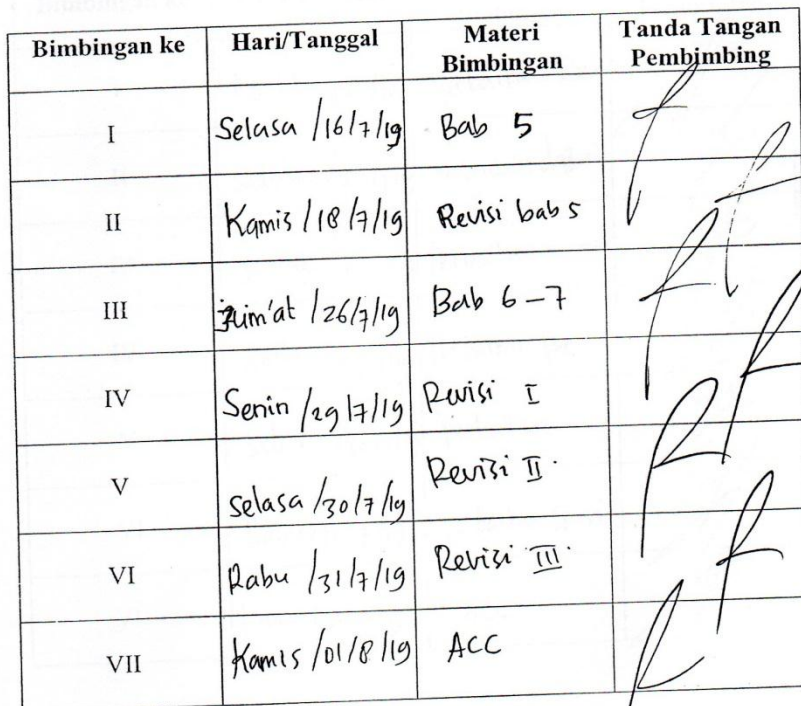 Bimbingan ke Hari/Tanggal Materi Bimbingan Tanda Tangan Pembimbing
I Selasa /16/7/19 Bab 5
II Kamis /18/7/19 Revisi bab 5
III Jum'at /26/7/19 Bab 6-7
IV Senin /29/7/19 Revisi I
V Selasa /30/7/19 Revisi II.
VI Rabu /31/7/19 Revisi III.
VII Kamis /01/8/19 ACC